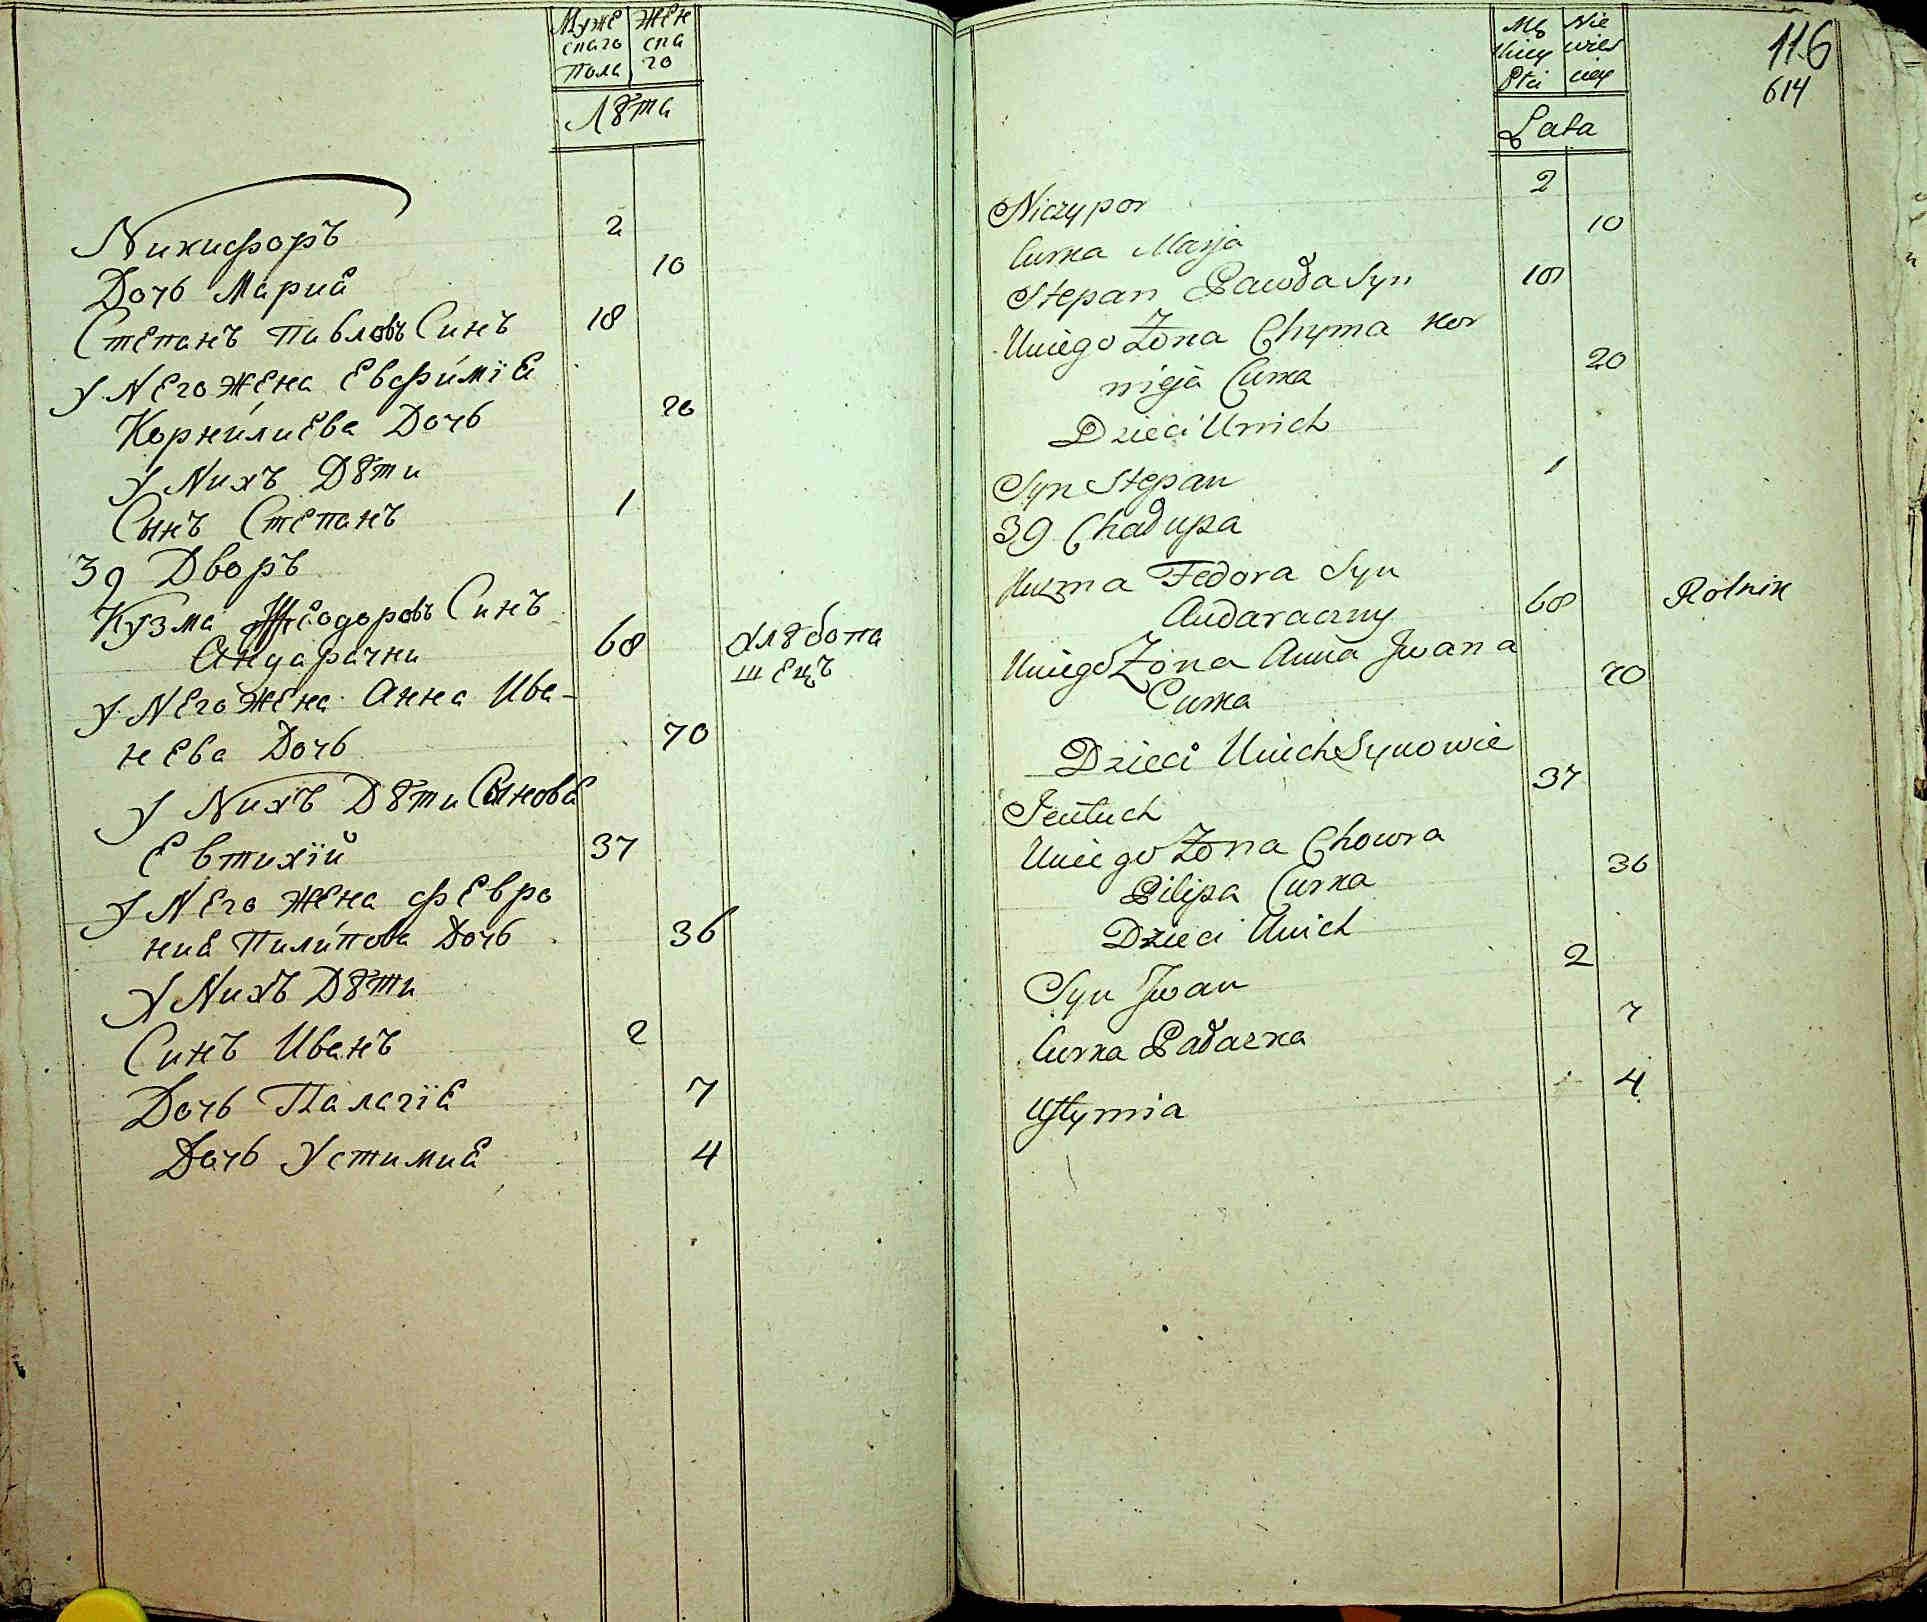 Муже Жен
скаго ска
Пола го
Лѣта
Никифоръ 2
Дочь Мариа 10
Степанъ Павловъ Синъ 18
у Него Жена Евфимїа
Корнилиева Дочь 20
у Нихъ Дѣти
Сынъ Степанъ 1
39 Дворъ
Кузма Ѳеодоровъ Синъ
Андарачни 68 Хлѣбопа
шецъ
у Него Жена Анна Ива-
нева Дочь 70
у Нихъ Дѣти Сынова
Евтихїй 37
у Него Жена Февро
ниа Пилипова Дочь 36
у Нихъ Дѣти
Синъ Иванъ 2
Дочь Палагїа 7
Дочь Устимиа 4
116
614
Mę Nie
skiey wies
Płci ciey
Lata
Niczypor 2
Curka Marja 10
Stepan Pawła Syn 18
Uniego Żona Chyma Kor
nieja Curka 20
Dzieci Unich
Syn Stepan 1
39 Chałupa
Kuzma Fedora Syn
Andaraczny 68 Rolnik
Uniego Żona Anna Jwana
Curka 70
Dzieci Unich Synowie
Jeutuch 37
Uniego Żona Chowra
Pilipa Curka 36
Dzieci Unich
Syn Jwan 2
Curka Pałaszka 7
Ustymia 4